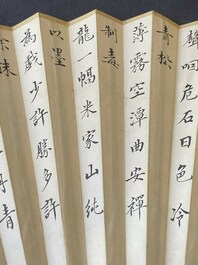 聲咽危石日色冷
青松
薄霧空潭曲安禪
制毒
龍一幅米家山純
以墨
為戲少許勝多許
味
青